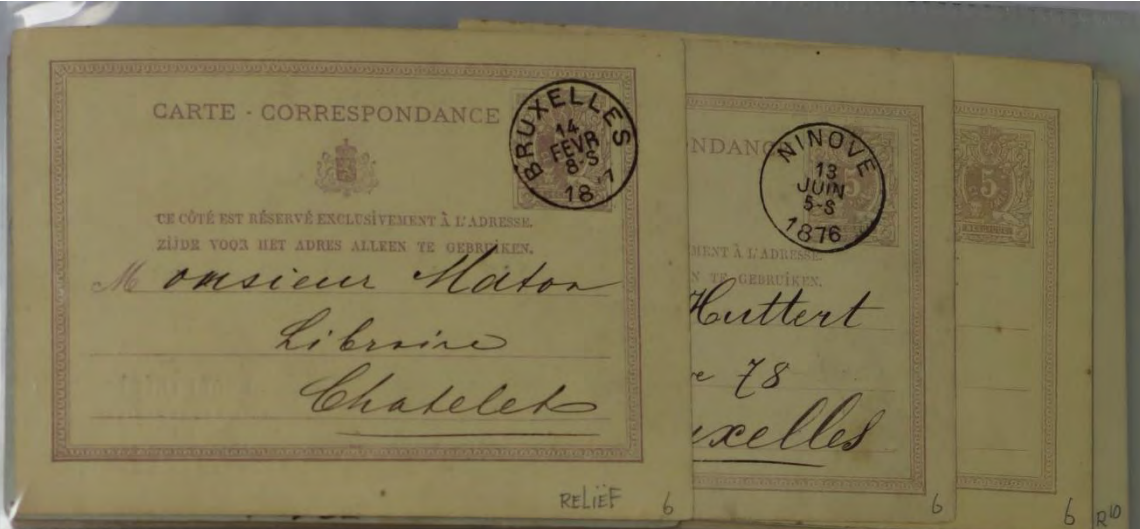 CARTE - CORRESPONDANCE
BRUXELLES
14
FEVR
8-S
CE CÔTÉ EST RÉSERVÉ EXCLUSIVEMENT À L'ADRESSE.
ZIJDE VOOR HET ADRES ALLEEN TE GEBRUIKEN.
Monsieur Maton
Libraire
Chatelet
RELIËF 6
NDANC
NINOVE
13
JUIN
5-S
1876
5
MENT À L'ADRESSE.
N TE GEBRUIKEN.
Huttert
re 78
uxelles
6
5
6
R10